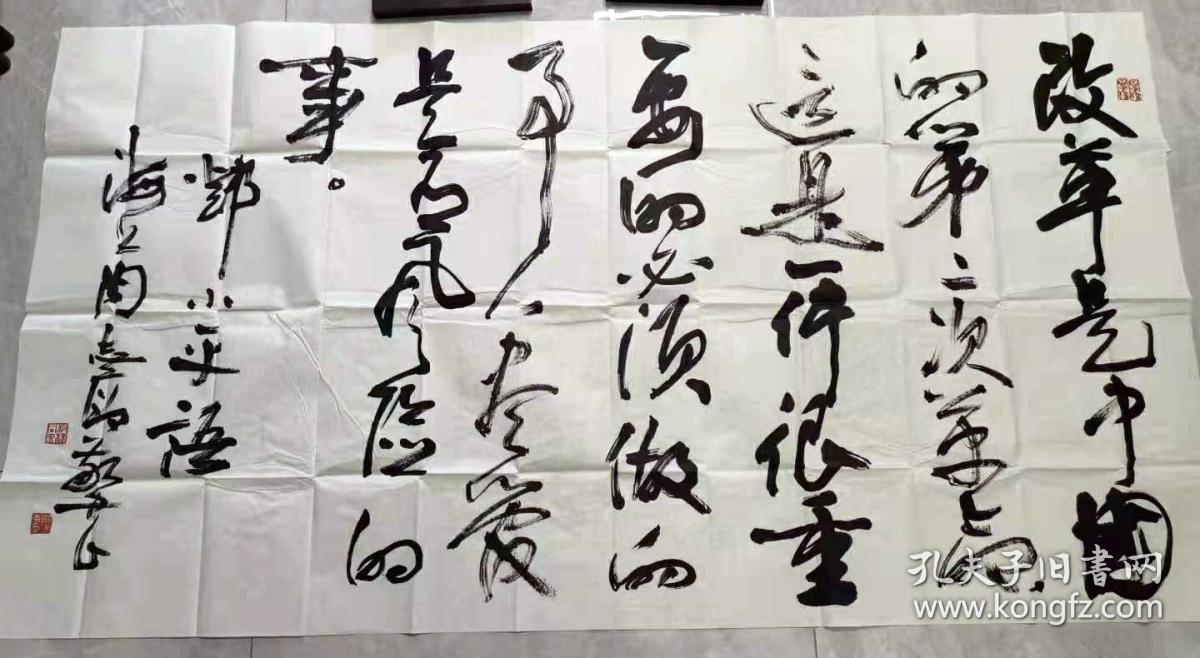 改革是中国
的第二次革命，
这是一件很重
要的必须做的
事，尽管
是有风险的
事。
邓小平语
海上周志高敬书
孔夫子旧书网
www.kongfz.com